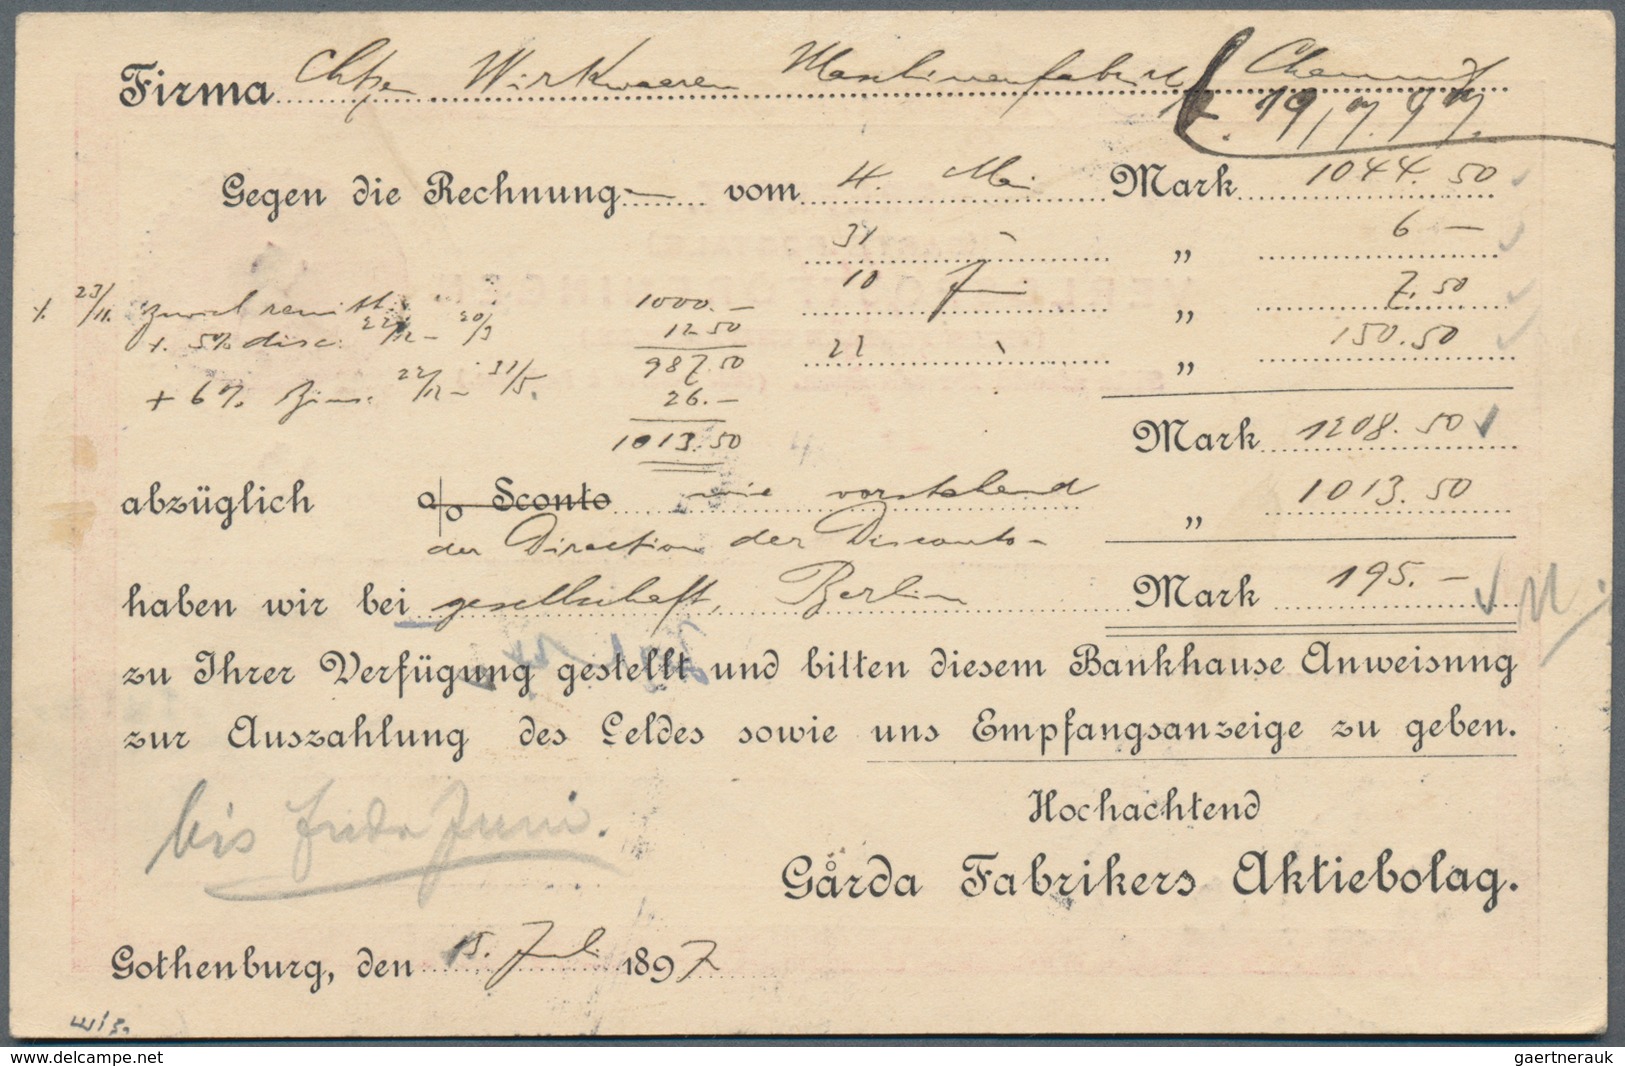 Firma Wirkwaaren Maschinenfabrik Chemnitz
19/7.97.
Gegen die Rechnung — vom 4. Mai Mark 1044.50
31 " „ 6 —
10 Juni „ 7.50
22 " „ 150.50
% 23/11. zurück remitt. 1000.—
%. 5% disc. 22/12 – 20/3 12 50
987.50
+ 6% Zins. 22/12 – 31/5. 26.—
1013.50
Mark 1208.50
abzüglich % Sconto wie vorstehend „ 1013.50
der Direction der Disconto-
haben wir bei gesellschaft, Berlin Mark 195.—
zu Ihrer Verfügung gestellt und bitten diesem Bankhause Anweisnng
zur Auszahlung des Geldes sowie uns Empfangsanzeige zu geben.
bis Ende Juni.
Hochachtend
Gårda Fabrikers Aktiebolag.
Gothenburg, den 15. Juli 1897
delcampe.net
gaertnerauk